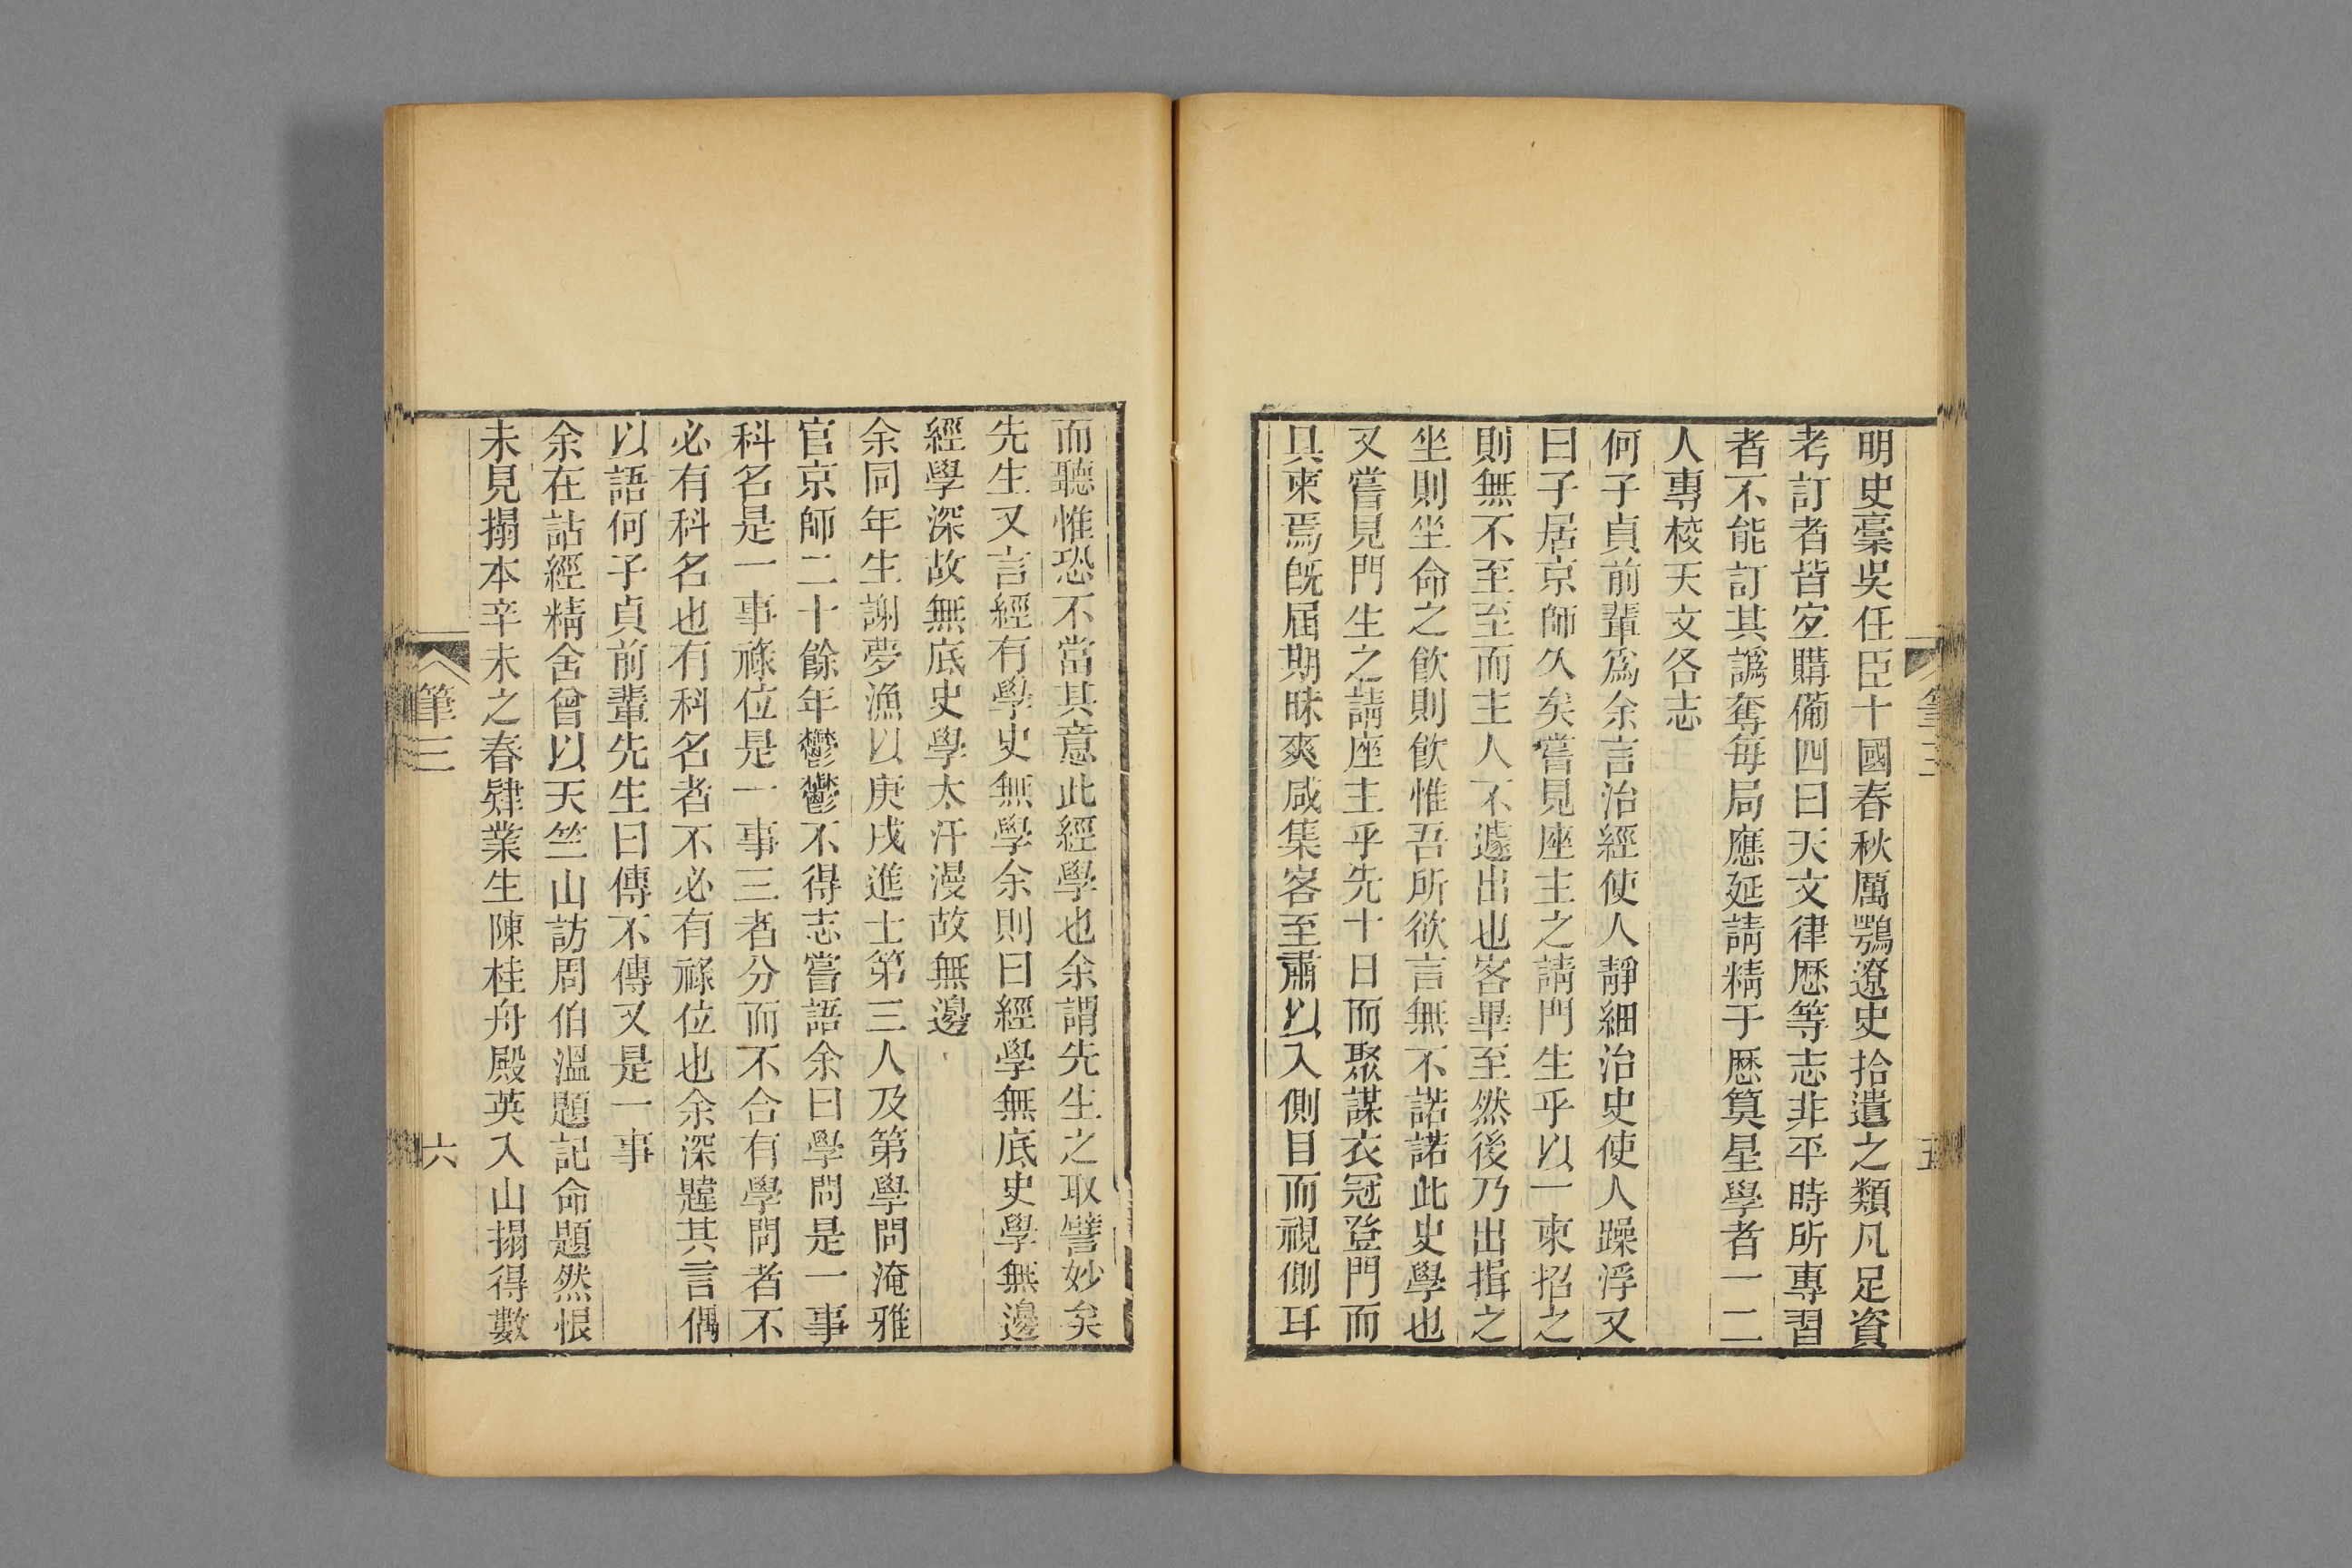 明史稾吳任臣十國春秋厲鶚遼史拾遺之類凡足資
考訂者皆宜購備四曰天文律歷等志非平時所專習
者不能訂其譌奪每局應延請精于歷算星學者一二
人專校天文各志
何子貞前輩爲余言治經使人靜細治史使人躁浮又
曰子居京師久矣嘗見座主之請門生乎以一柬招之
則無不至至而主人不遽出也客畢至然後乃出揖之
坐則坐命之飮則飮惟吾所欲言無不諾諾此史學也
又嘗見門生之請座主乎先十日而聚謀衣冠登門而
具柬焉旣屆期昧爽咸集客至肅以入側目而視側耳
筆三
五
而聽惟恐不當其意此經學也余謂先生之取譬妙矣
先生又言經有學史無學余則曰經學無底史學無邊
經學深故無底史學太汗漫故無邊
余同年生謝夢漁以庚戌進士第三人及第學問淹雅
官京師二十餘年鬱鬱不得志嘗語余曰學問是一事
科名是一事祿位是一事三者分而不合有學問者不
必有科名也有科名者不必有祿位也余深韙其言偶
以語何子貞前輩先生曰傳不傳又是一事
余在詁經精舍曾以天竺山訪周伯溫題記命題然恨
未見搨本辛未之春肄業生陳桂舟殿英入山搨得數
筆三
六